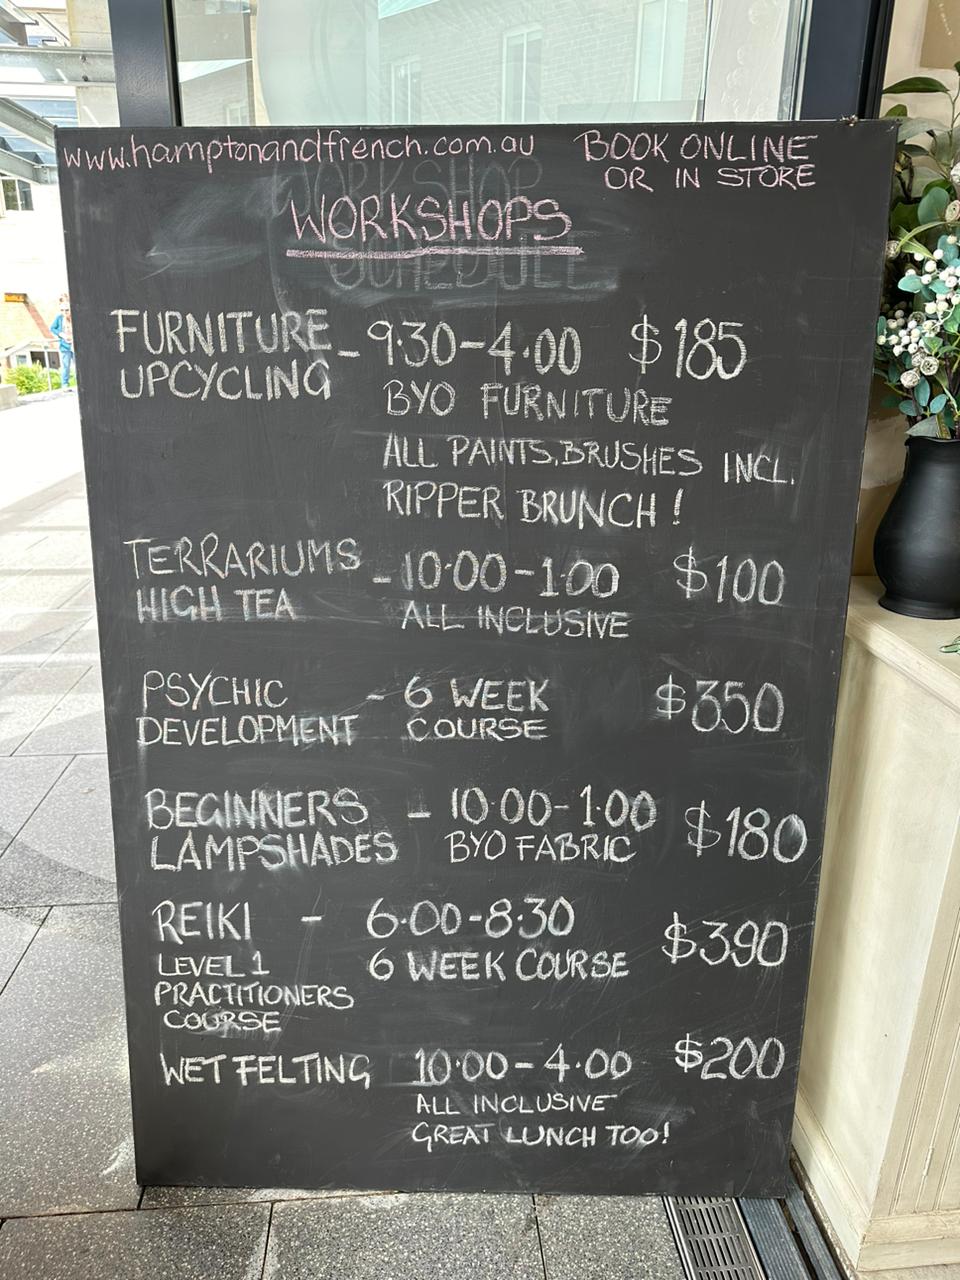 www.hamptonandfrench.com.au
BOOK ONLINE
OR IN STORE
WORKSHOP
WORKSHOPS
SCHEDULE
FURNITURE
UPCYCLING
- 9.30-4.00 $185
BYO FURNITURE
ALL PAINTS, BRUSHES INCL.
RIPPER BRUNCH!
TERRARIUMS
HIGH TEA
- 10.00-1.00 $100
ALL INCLUSIVE
PSYCHIC
DEVELOPMENT
- 6 WEEK
COURSE
$350
BEGINNERS
LAMPSHADES
- 10.00-1.00
BYO FABRIC
$180
REIKI - 6.00-8.30
LEVEL 1
PRACTITIONERS
COURSE
6 WEEK COURSE
$390
WET FELTING 10.00-4.00 $200
ALL INCLUSIVE
GREAT LUNCH TOO!